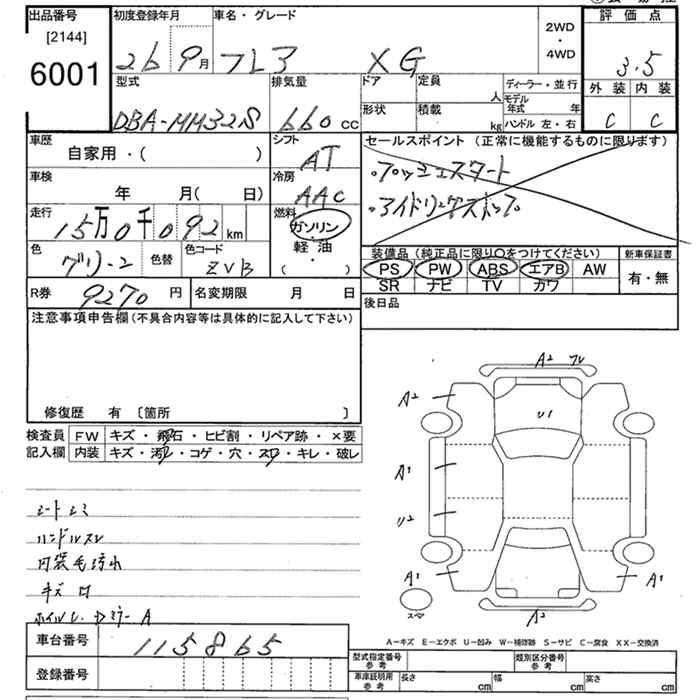 出品番号
[2144]
6001
初度登録年月
26 9月
車名・グレード
フレア XG
2WD
・
4WD
評価点
3.5
外装 内装
C C
型式
DBA-MM32S
排気量
660 cc
ドア 定員
人
形状 積載
kg
ディーラー・並行
モデル年式 年
ハンドル 左・右
車歴
自家用・( )
シフト
AT
車検
年 月( 日)
冷房
AAC
走行
15万0千092 km
燃料
ガソリン・
軽油
・( )
色
グリーン
色替
色コード
ZVB
セールスポイント(正常に機能するものに限ります)
・プッシュスタート
・アイドリングストップ
装備品(純正品に限り○をつけてください)
PS PW ABS エアB AW
SR ナビ TV カワ
新車保証書
有・無
R券 9270 円
名変期限 月 日
後日品
注意事項申告欄(不具合内容等は具体的に記入して下さい)
修復歴 有 〔箇所 〕
検査員 FW キズ・飛石・ヒビ割・リペア跡・×要
記入欄 内装 キズ・汚レ・コゲ・穴・スレ・キレ・破レ
シートシミ
ハンドルスレ
内装毛汚れ
キズ
A
A2
A2
U1
A1
U2
A1
A1
A2
スペア
車台番号 115865
登録番号
A-キズ E-エクボ U-凹み W-補修跡 S-サビ C-腐食 XX-交換済
型式指定番号 参考
類別区分番号 参考
車庫証明用 参考
長さ cm
幅 cm
高さ cm